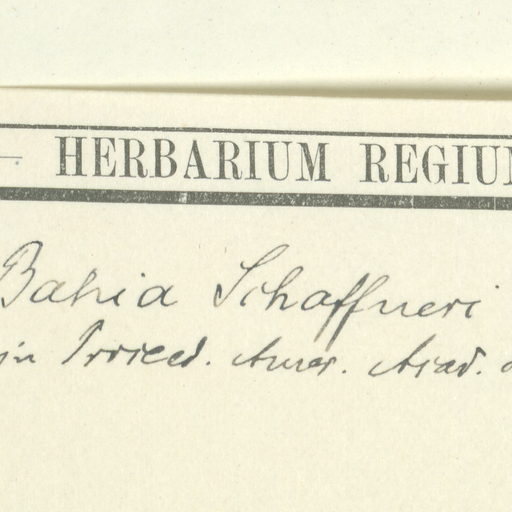 HERBARIUM REGIUM
Bahia Schaffneri
in Proceed. Amer. Acad.